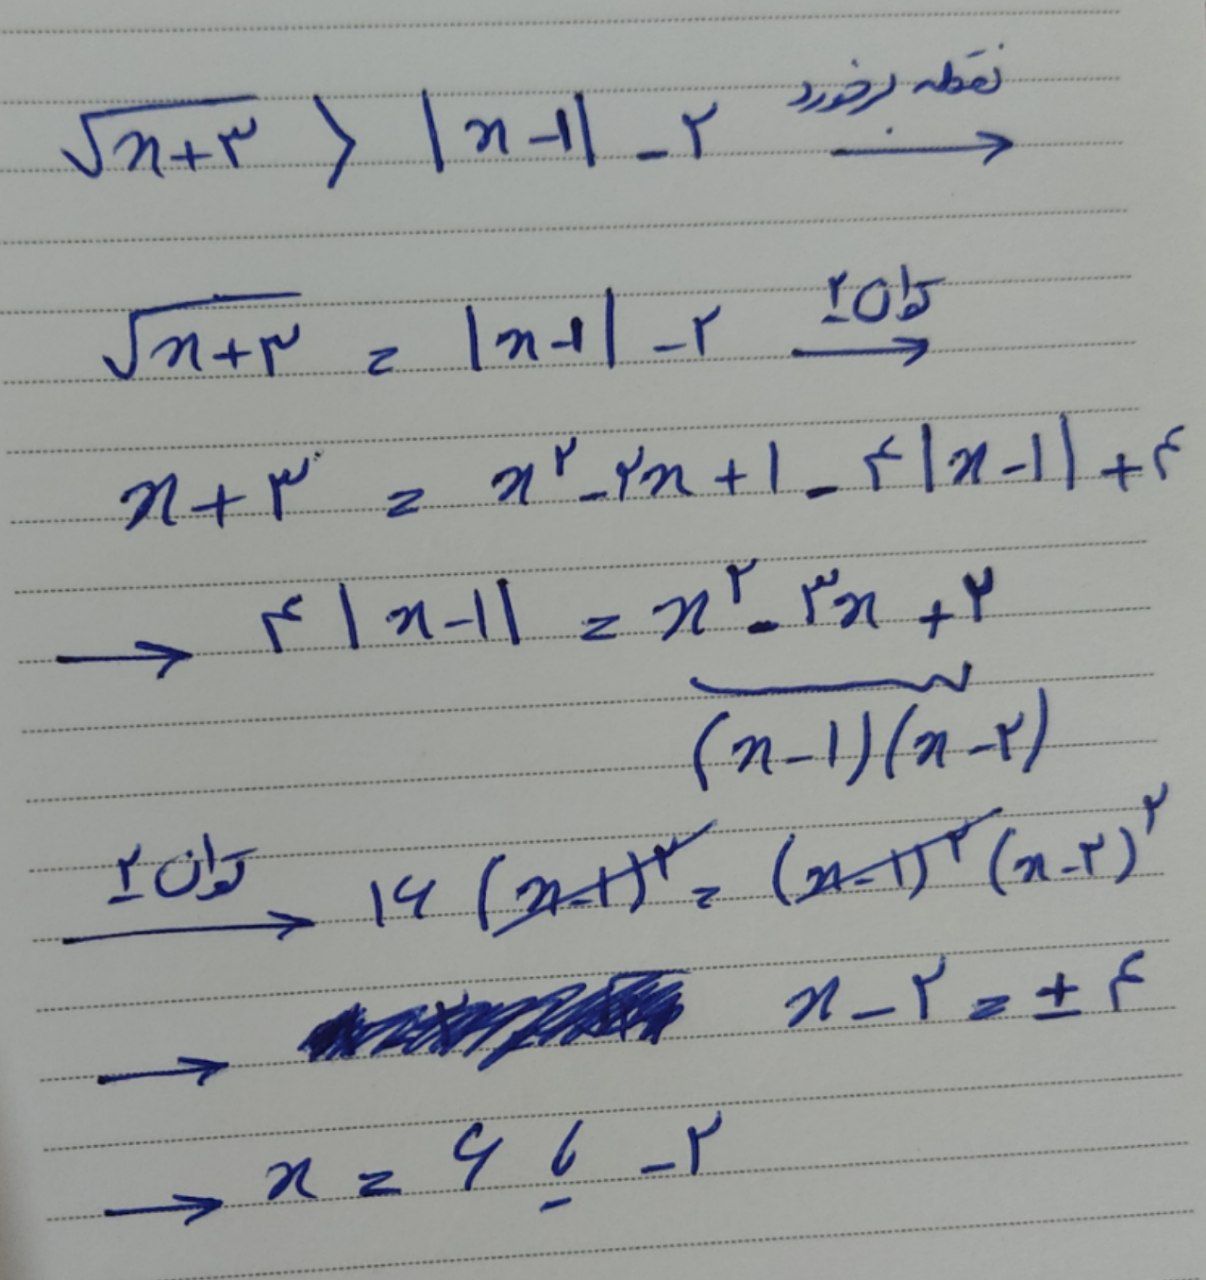 √(x+۳) > |x-۱| - ۲ نقطه برخورد →
√(x+۳) = |x-۱| - ۲ توان ۲ →
x + ۳ = x² - ۲x + ۱ - ۴|x-۱| + ۴
→ ۴|x-۱| = x² - ۳x + ۲
(x-۱)(x-۲)
توان ۲ → ۱۶ (x-۱)² = (x-۱)² (x-۲)²
→ x - ۲ = ± ۴
→ x = ۶ یا -۲